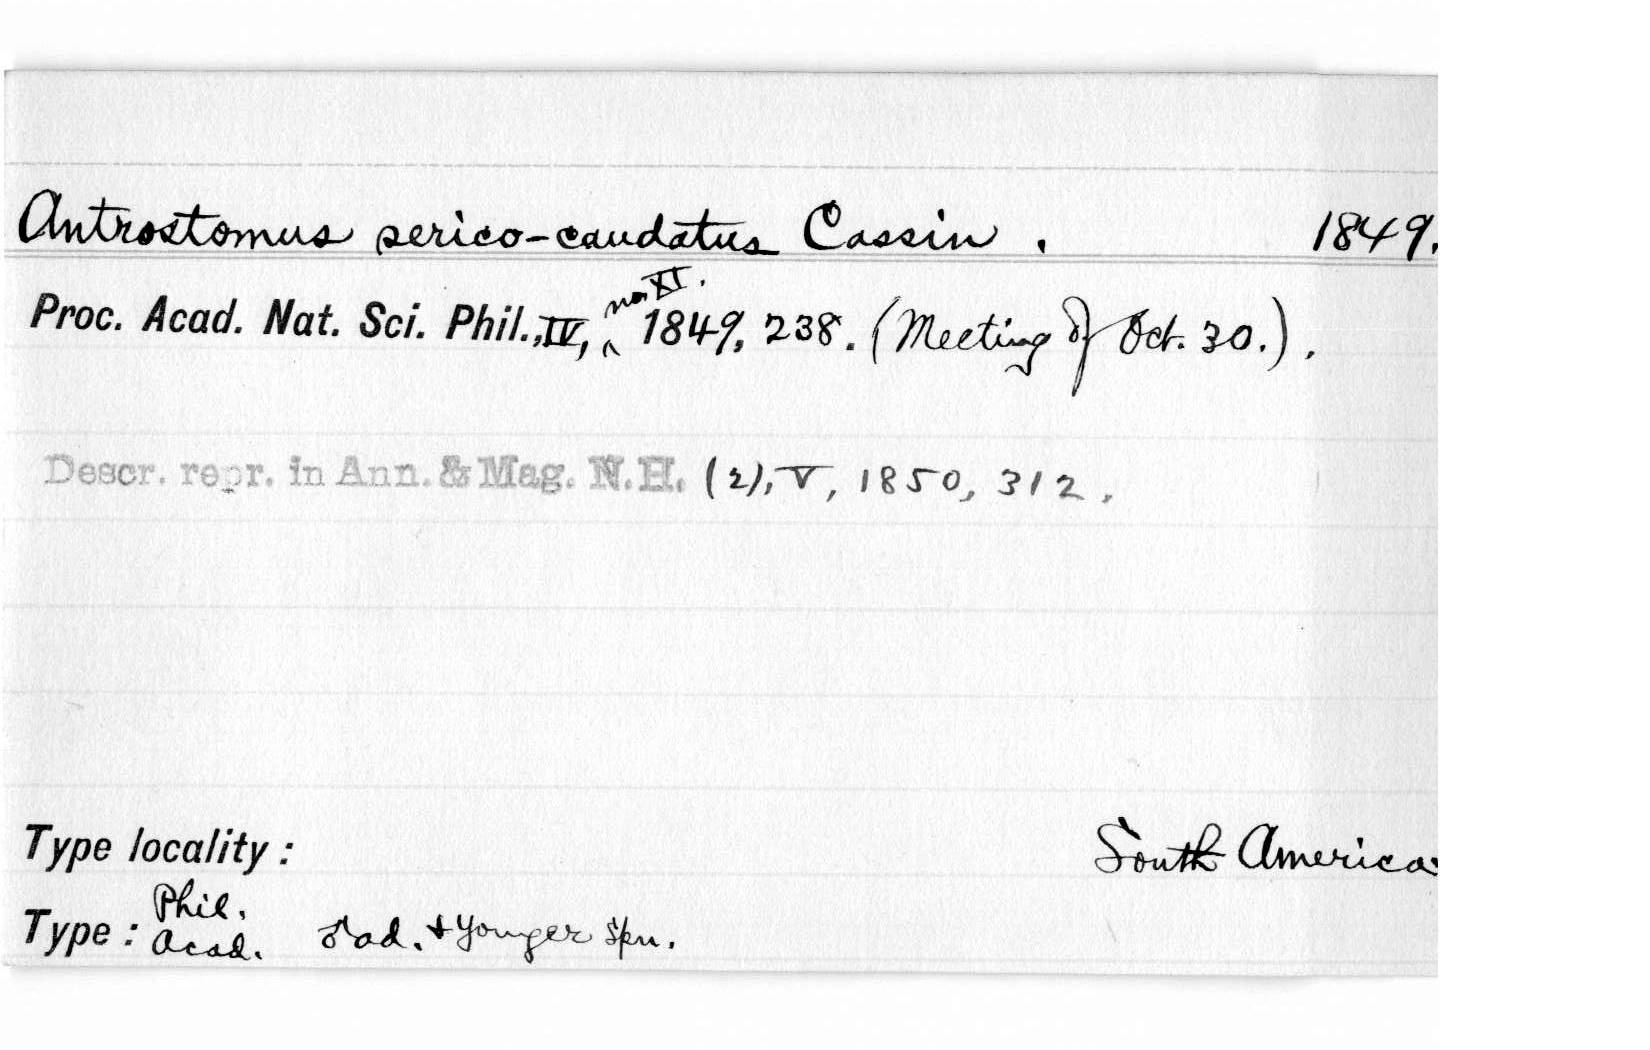 Antrostomus serico-caudatus Cassin . 1849.
Proc. Acad. Nat. Sci. Phil., IV, no. XI. 1849, 238. (Meeting of Oct. 30.) .
Descr. repr. in Ann. & Mag. N.H. (2), V, 1850, 312.
Type locality: South America.
Type: Phil. Acad. ♂ad. + Younger Spn.